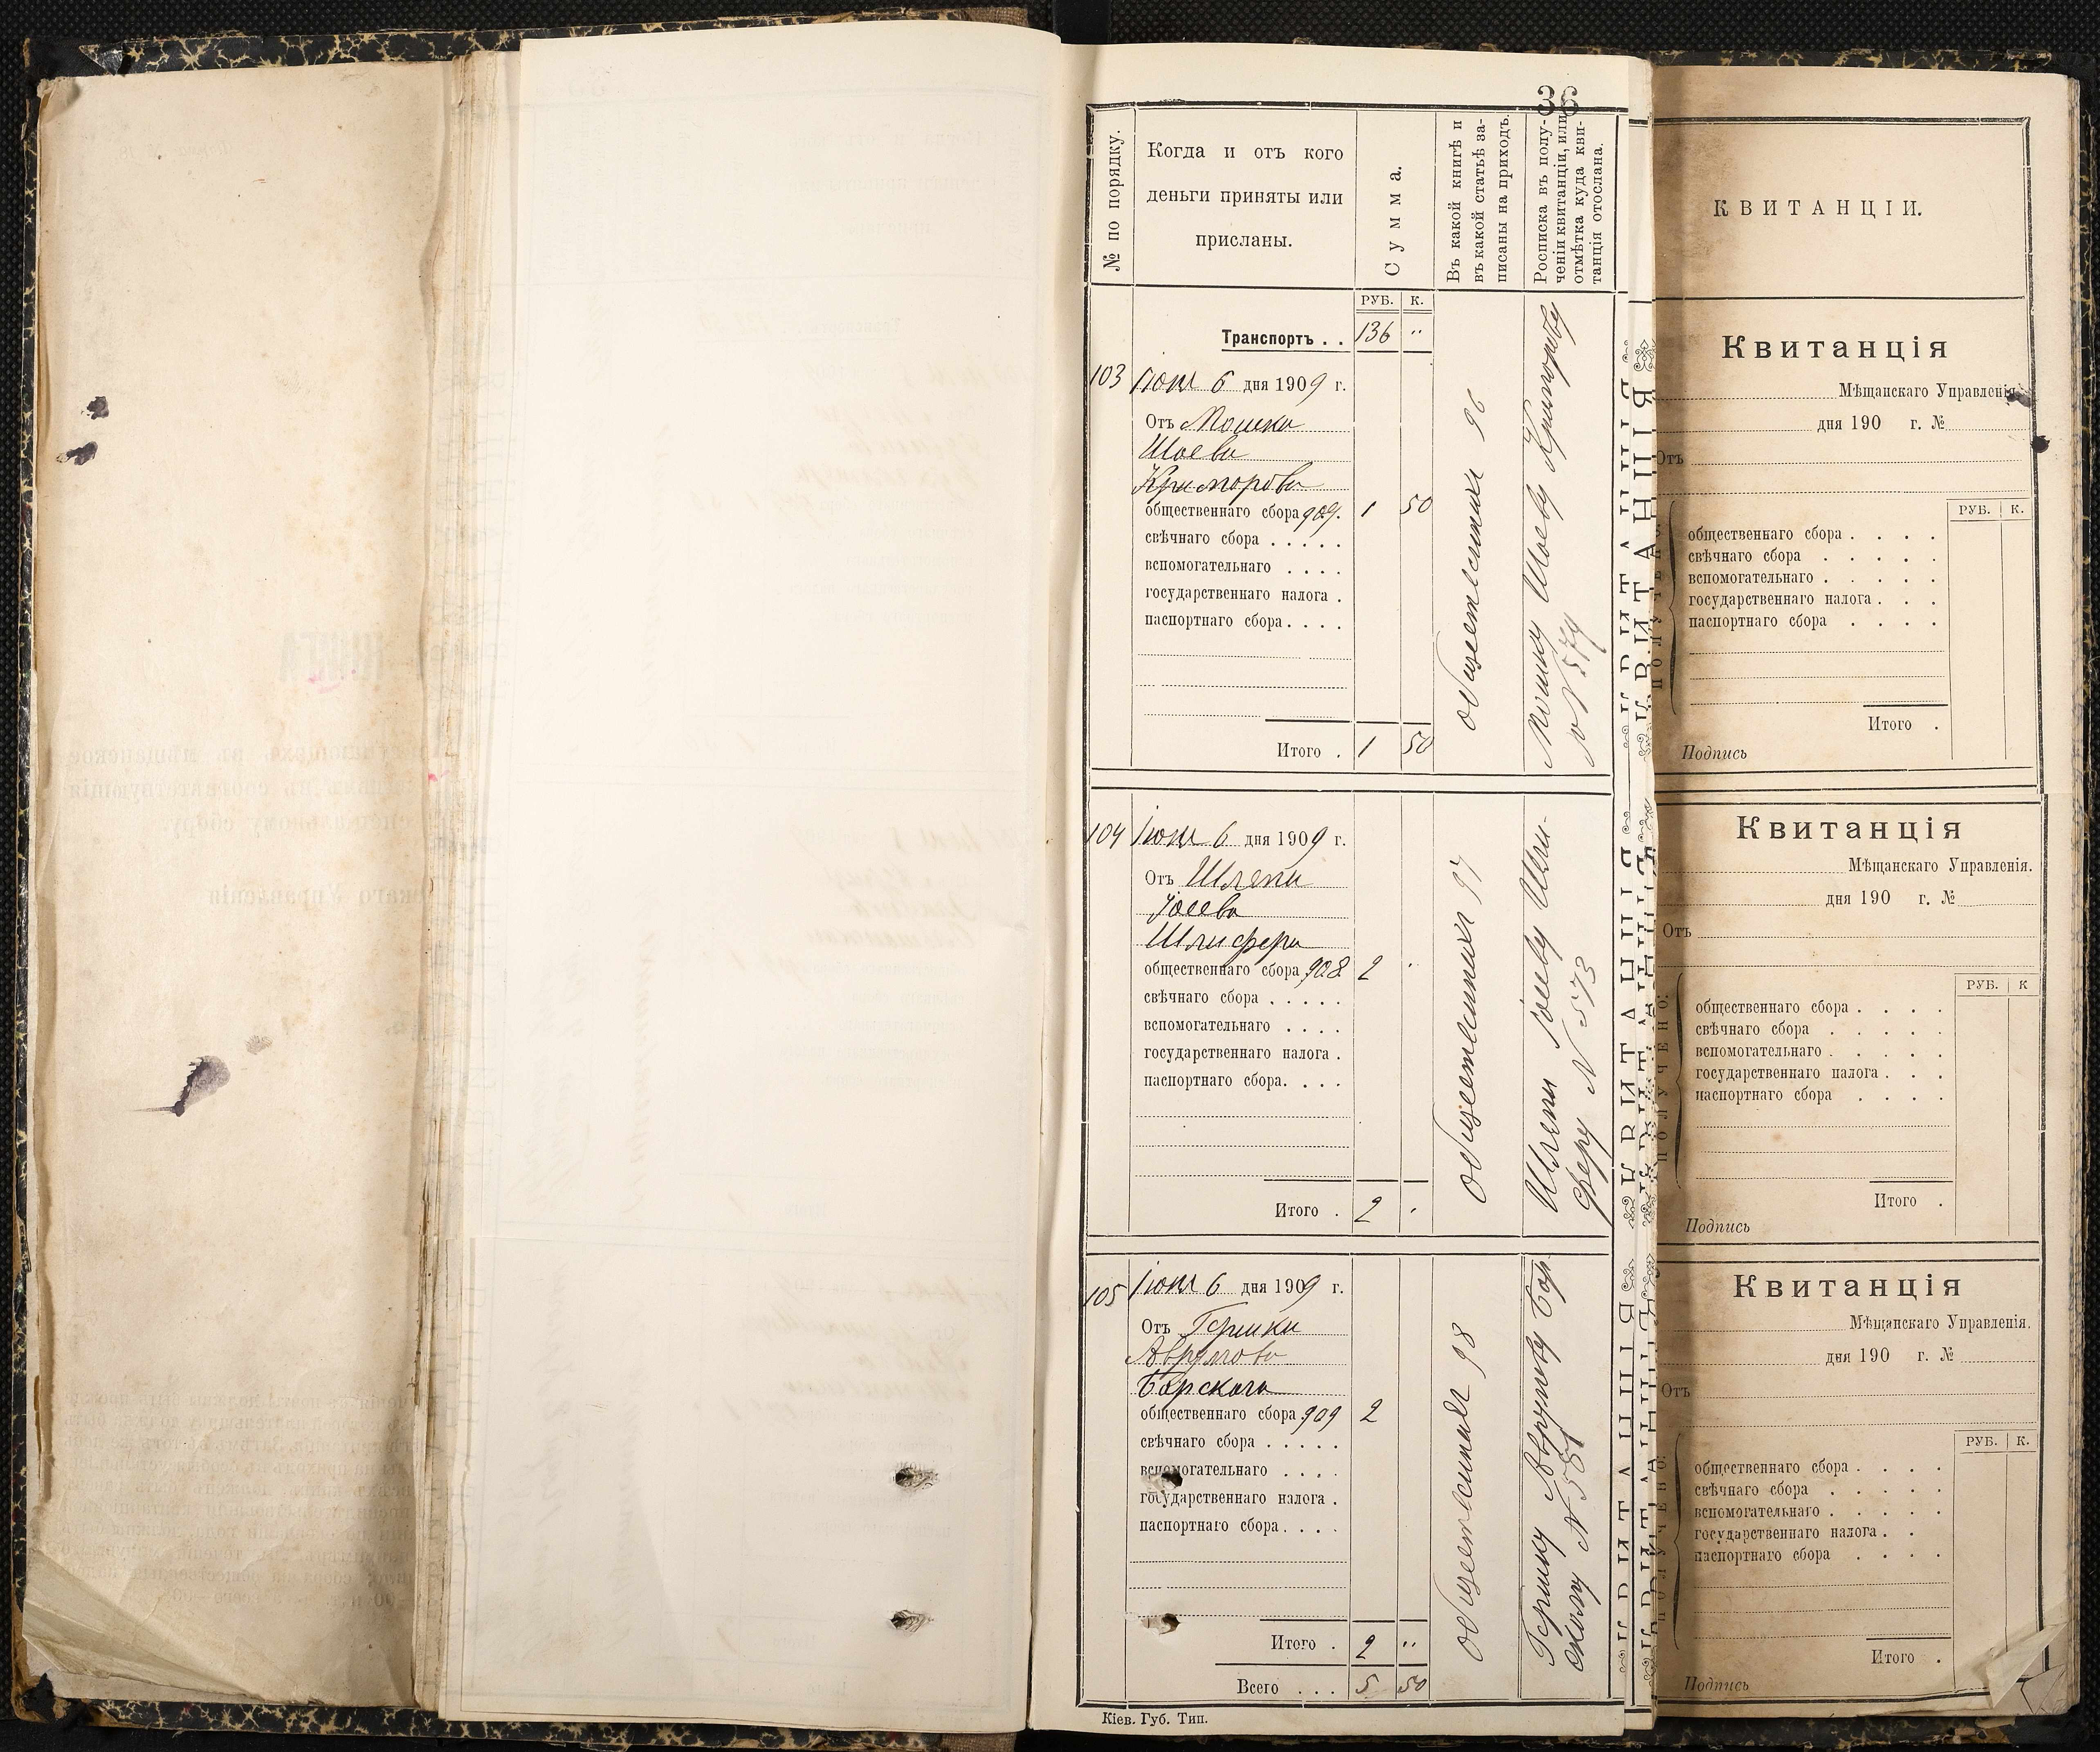 36
№ по порядку.
Когда и отъ кого
деньги приняты или
присланы.
Сумма.
Въ какой книгѣ и
въ какой статьѣ за-
писаны на приходъ.
Росписка въ полу-
ченіи квитанціи, или
отмѣтка куда кви-
танція отослана.
РУБ. К.
Транспортъ . . 136 "
103 Іюля 6 дня 1909 г.
Отъ Мошка
Шоева
Криторова
общественнаго сбора 909. 1 50
свѣчнаго сбора . . . . .
вспомогательнаго . . . .
государственнаго налога .
паспортнаго сбора . . . .
Итого . 1 50
96
Мошку Шоеву
№ 574
104 Іюля 6 дня 1909 г.
Отъ Шлемы
Іосева
Шлифера
общественнаго сбора 908 2 "
свѣчнаго сбора . . . . .
вспомогательнаго . . . .
государственнаго налога .
паспортнаго сбора . . . .
Итого . 2 "
97
Шлемы Іосеву Шли-
феру № 573
105 Іюля 6 дня 1909 г.
Отъ Гершка
Аврумова
Барскаго
общественнаго сбора 909 2
свѣчнаго сбора . . . . .
вспомогательнаго . . . .
государственнаго налога .
паспортнаго сбора . . . .
Итого . 2 "
Всего . . . 5 50
98
Гершку Аврумову Бар-
скому № 581
Кіев. Губ. Тип.
КВИТАНЦІЯ
КВИТАНЦІЯ
КВИТАНЦІЯ
КВИТАНЦІИ.
Квитанція
Мѣщанскаго Управленія.
дня 190 г. №
Отъ
РУБ. К.
общественнаго сбора . . . .
свѣчнаго сбора . . . . .
вспомогательнаго . . . . .
государственнаго налога . . .
паспортнаго сбора . . . .
Итого .
Подпись
Квитанція
Мѣщанскаго Управленія.
дня 190 г. №
Отъ
ПОЛУЧЕНО:
РУБ. К
общественнаго сбора . . . .
свѣчнаго сбора . . . . .
вспомогательнаго . . . . .
государственнаго налога . . .
паспортнаго сбора . . . .
Итого .
Подпись
Квитанція
Мѣщанскаго Управленія.
дня 190 г. №
Отъ
ПОЛУЧЕНО:
РУБ. К.
общественнаго сбора . . . .
свѣчнаго сбора . . . . .
вспомогательнаго . . . . .
государственнаго налога . .
паспортнаго сбора . . . .
Итого .
Подпись